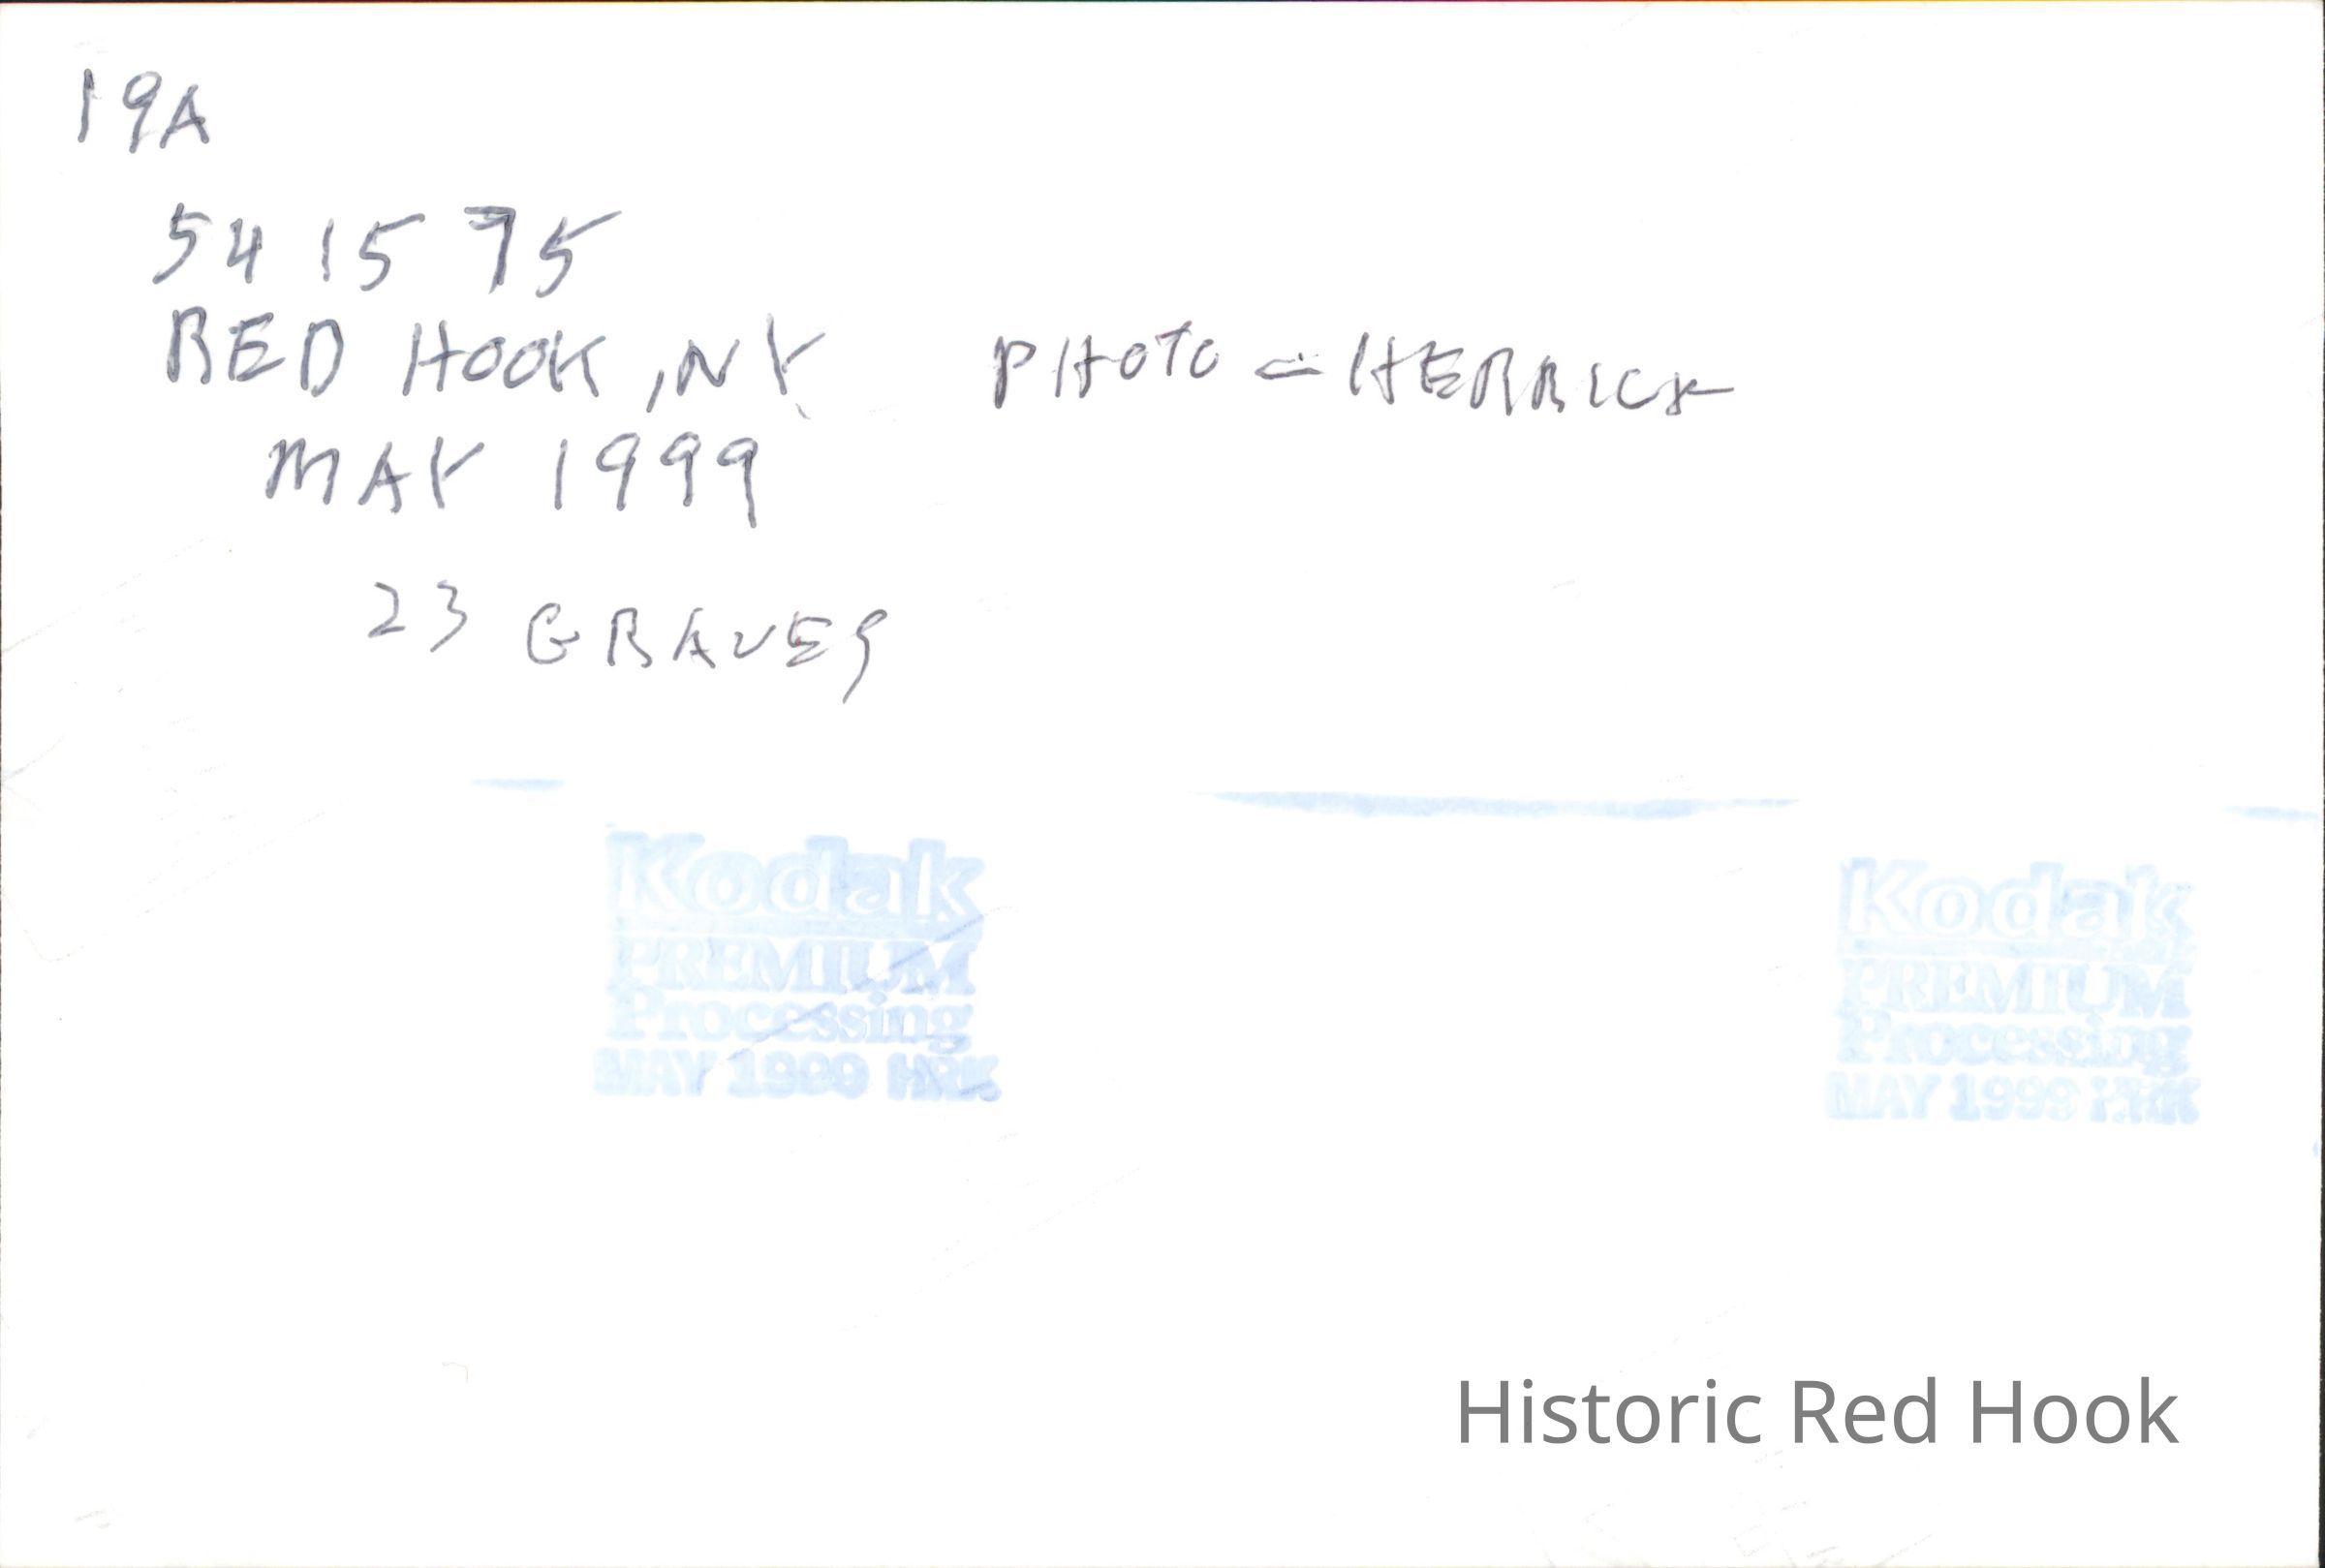 19A
54 15 75
RED HOOK, NY PHOTO - HERRICK
MAY 1999
23 GRAVES
Kodak
PREMIUM
Processing
MAY 1999 HRK
Kodak
PREMIUM
Processing
MAY 1999 HRK
Historic Red Hook